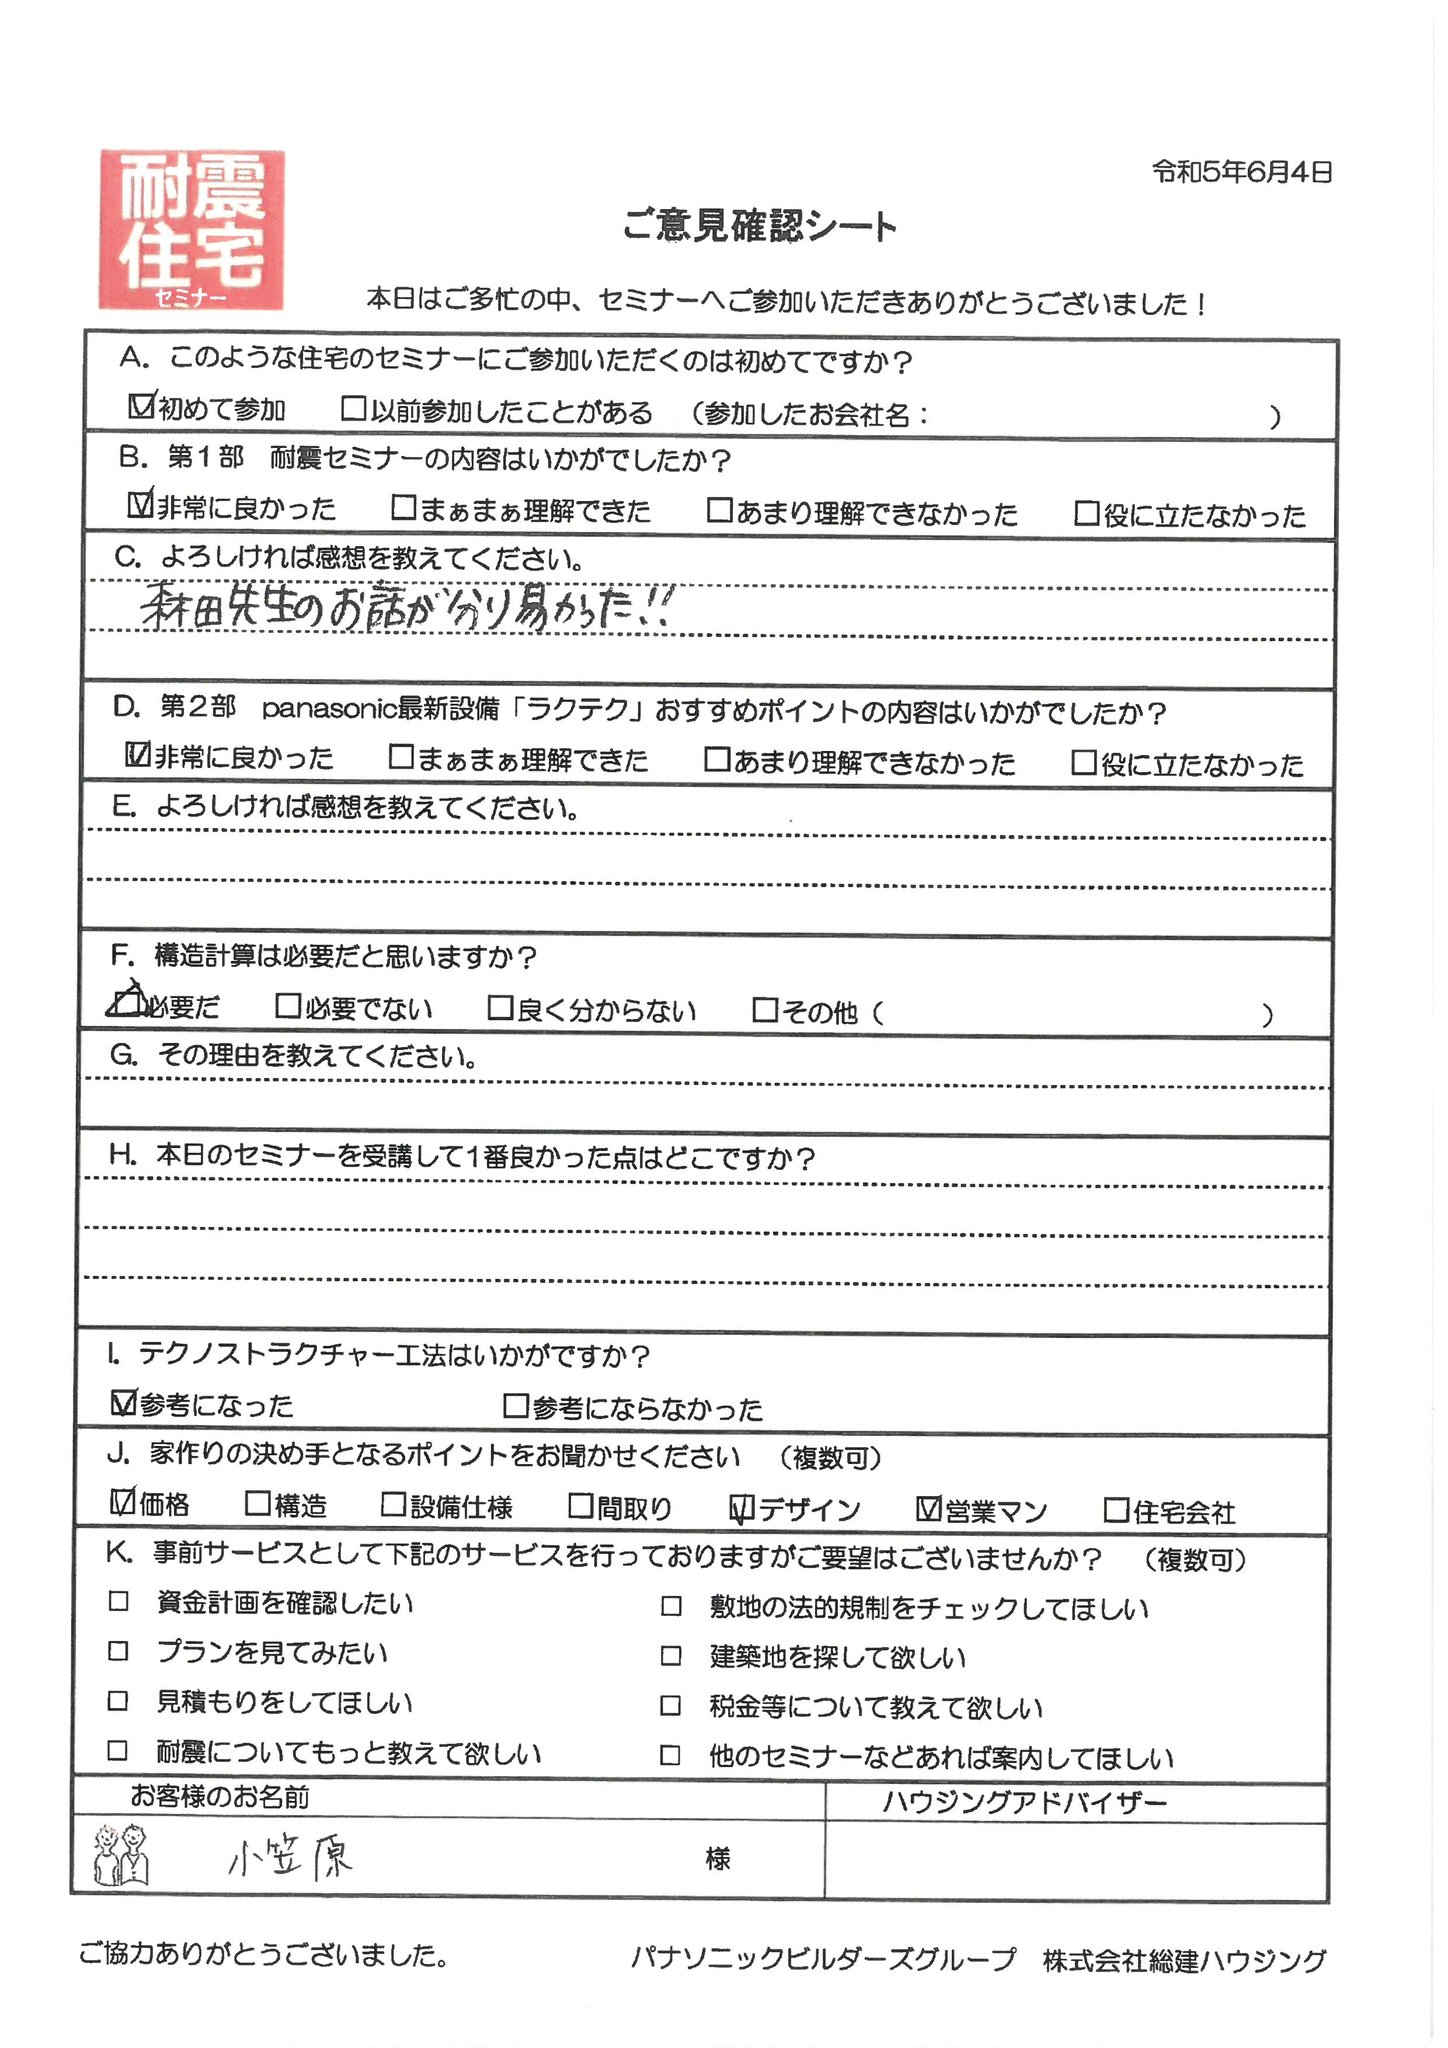 耐震
住宅
セミナー
令和5年6月4日
ご意見確認シート
本日はご多忙の中、セミナーへご参加いただきありがとうございました！
A. このような住宅のセミナーにご参加いただくのは初めてですか？
☑初めて参加 □以前参加したことがある （参加したお会社名： ）
B. 第1部 耐震セミナーの内容はいかがでしたか？
☑非常に良かった □まぁまぁ理解できた □あまり理解できなかった □役に立たなかった
C. よろしければ感想を教えてください。
森田先生のお話が分り易かった!!
D. 第2部 panasonic最新設備「ラクテク」おすすめポイントの内容はいかがでしたか？
☑非常に良かった □まぁまぁ理解できた □あまり理解できなかった □役に立たなかった
E. よろしければ感想を教えてください。
F. 構造計算は必要だと思いますか？
☑必要だ □必要でない □良く分からない □その他（ ）
G. その理由を教えてください。
H. 本日のセミナーを受講して1番良かった点はどこですか？
I. テクノストラクチャー工法はいかがですか？
☑参考になった □参考にならなかった
J. 家作りの決め手となるポイントをお聞かせください （複数可）
☑価格 □構造 □設備仕様 □間取り ☑デザイン ☑営業マン □住宅会社
K. 事前サービスとして下記のサービスを行っておりますがご要望はございませんか？ （複数可）
□ 資金計画を確認したい □ 敷地の法的規制をチェックしてほしい
□ プランを見てみたい □ 建築地を探して欲しい
□ 見積もりをしてほしい □ 税金等について教えて欲しい
□ 耐震についてもっと教えて欲しい □ 他のセミナーなどあれば案内してほしい
お客様のお名前 ハウジングアドバイザー
小笠原 様
ご協力ありがとうございました。 パナソニックビルダーズグループ 株式会社総建ハウジング